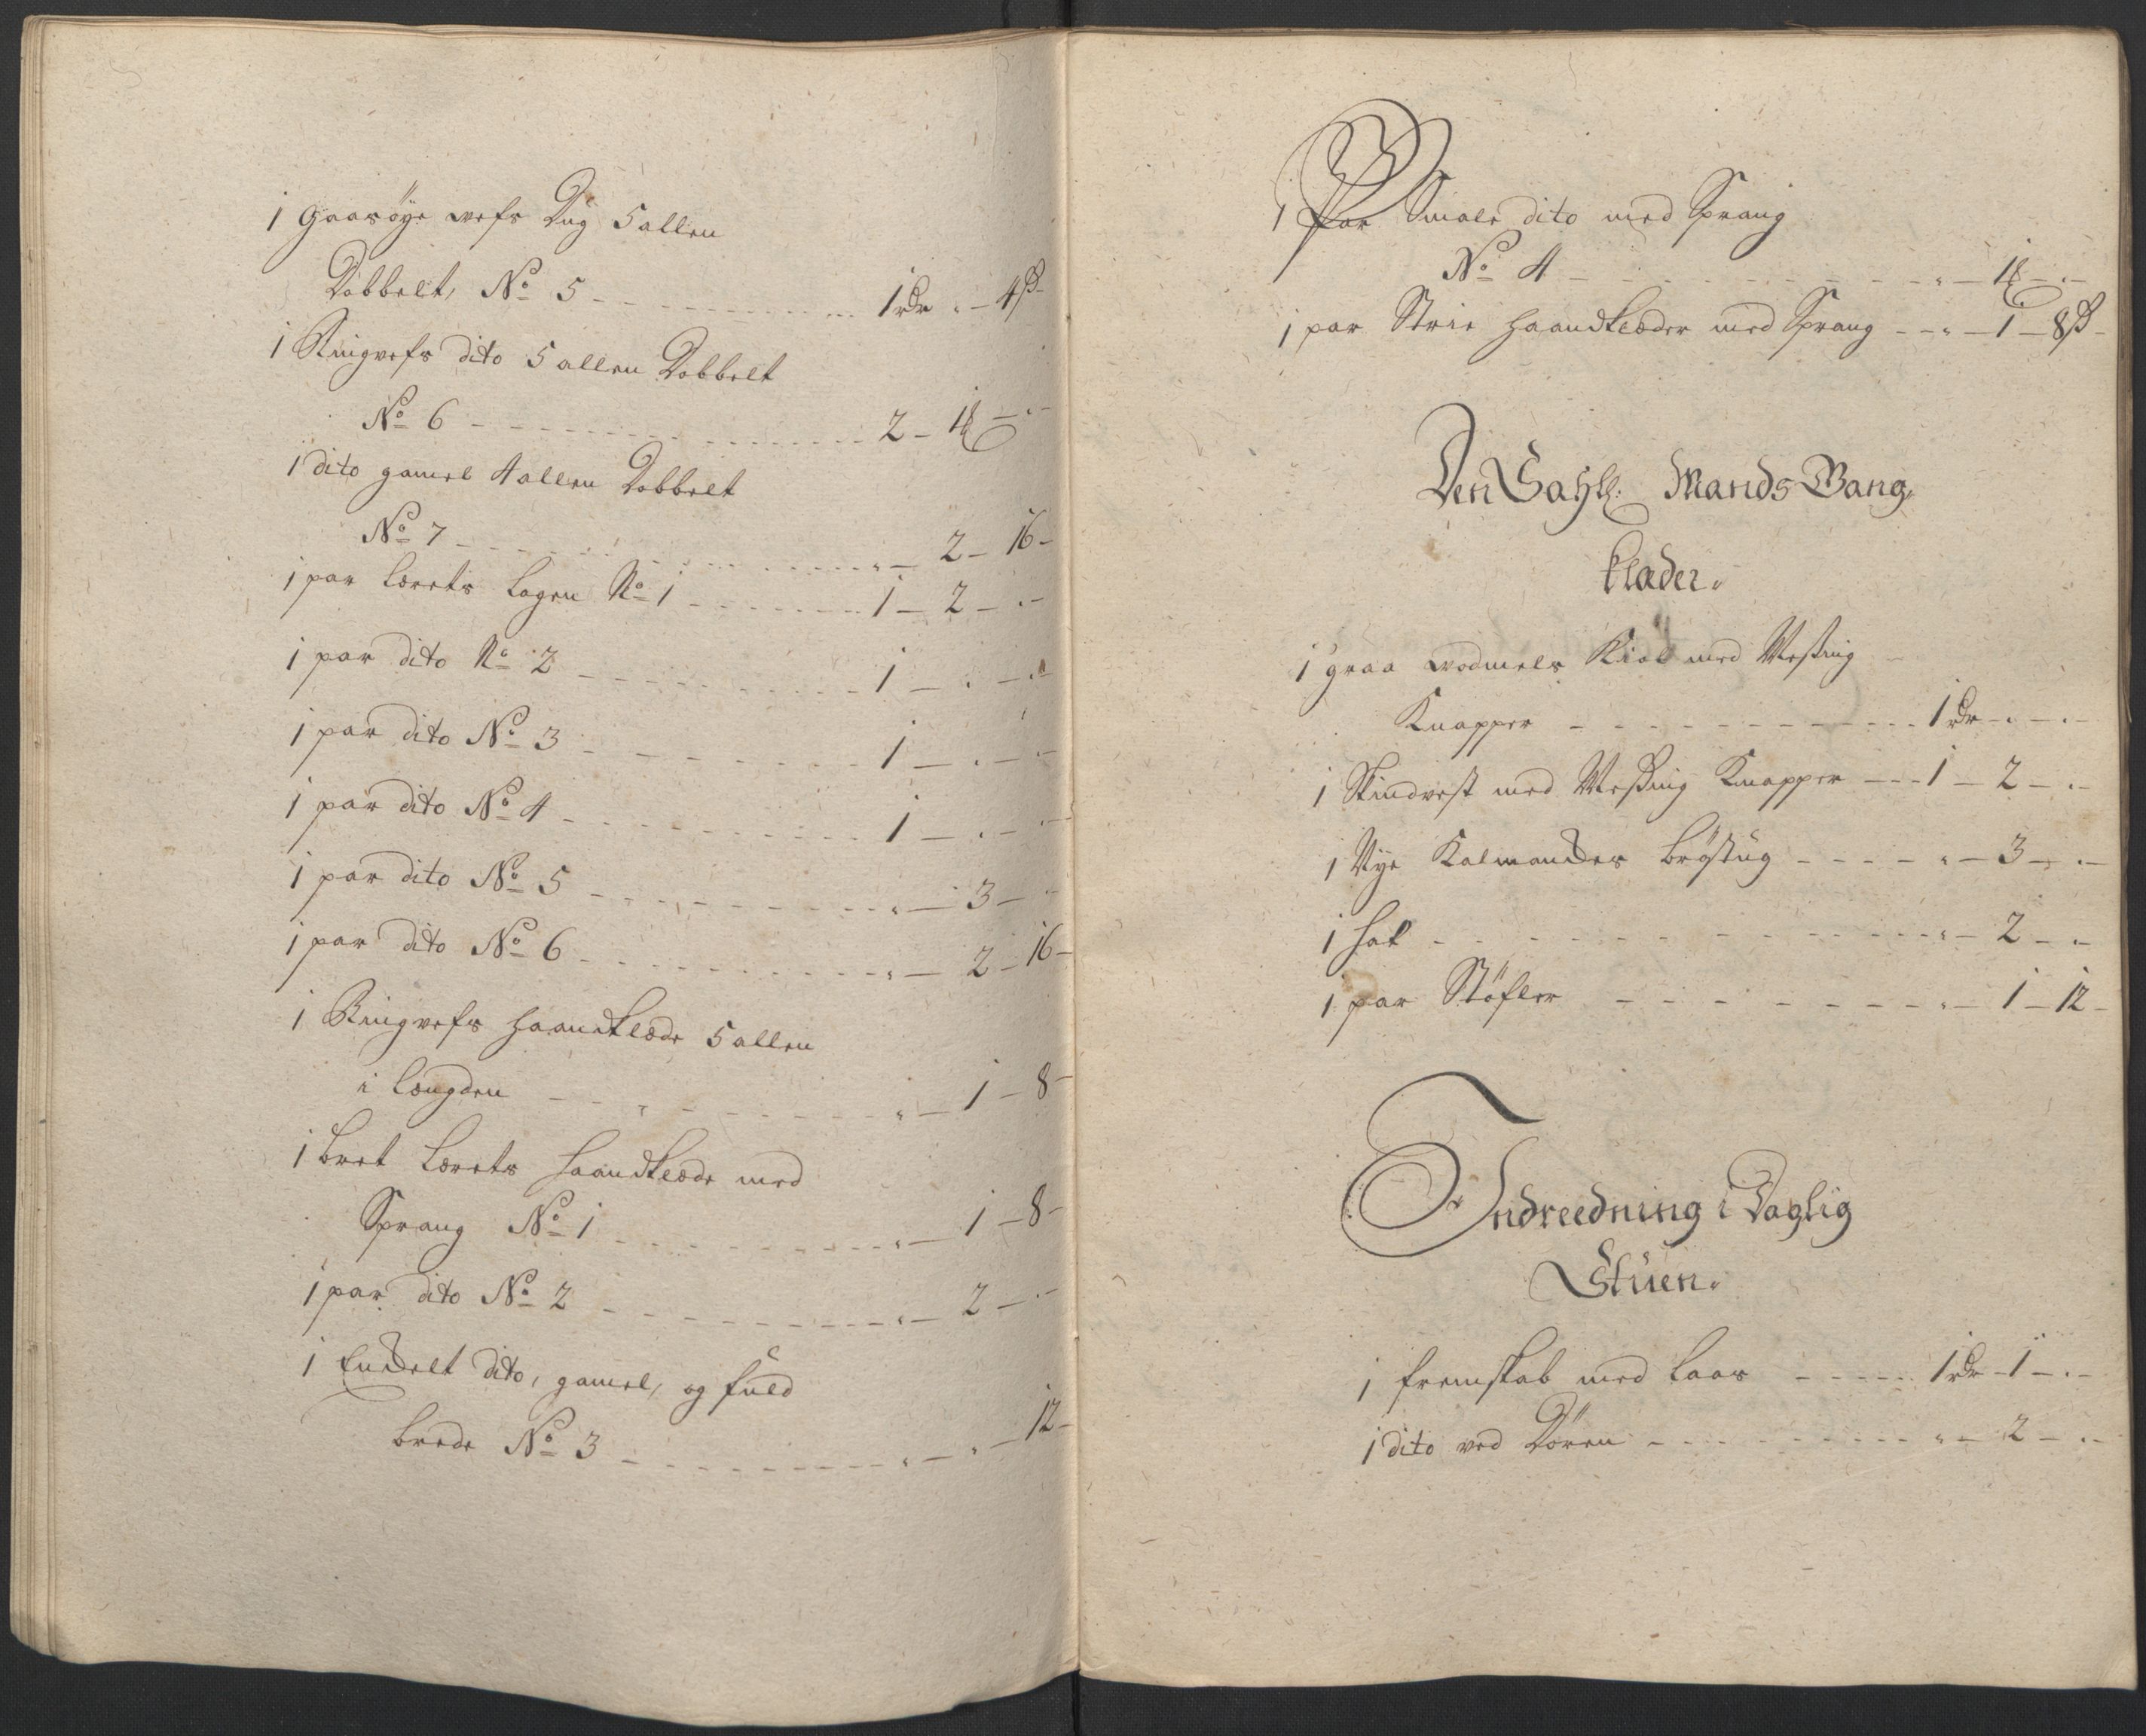 1 Gaasøye vefs Dug 5 allen
Dobbelt, No 5 - - - 1 rdr . - 4 ß -
1 Ringvefs dito 5 allen Dobbelt
No 6 - - - 2 - 1 - . -
1 dito gamel 4 allen Dobbelt
No 7 - - - " - 2 - 16 -
1 par Lerets Lagen No 1 - - - 1 - 2 - . -
1 par dito No 2 - - - 1 - . - . -
1 par dito No 3 - - - 1 - . - . -
1 par dito No 4 - - - 1 - . - . -
1 par dito No 5 - - - " - 3 - . -
1 par dito No 6 - - - " - 2 - 16 -
1 Ringvefs Haandklæde 5 allen
i Længden - - - " - 1 - 8 -
1 bret Lerets Haandklæde med
Sprang No 1 - - - " - 1 - 8 -
1 par dito No 2 - - - " - 2 - . -
1 Enckelt dito, gamel, og fuld
brede No 3 - - - " - " - 12 -
1 Par Smale dito med Sprang
No 4 - - - " - 1 - . -
1 par Strie Haandklæder med Sprang - - " - 1 - 8 ß -
Den Sahl. Mands Gang
klæder.
1 graa vadmels Kiol med Messing
Knapper - - - 1 rdr - . - . -
1 Skindvest med Messing Knapper - - - 1 - 2 - . -
1 Nye Kalmandes brøstug - - - " - 3 - . -
1 Hat - - - " - 2 - . -
1 par Støfler - - - " - 1 - 12 -
Indreedning i Daglig
Stuen.
1 fremskab med Laas - - - 1 rdr - 1 - . -
1 dito ved Døren - - - " - 2 - . -